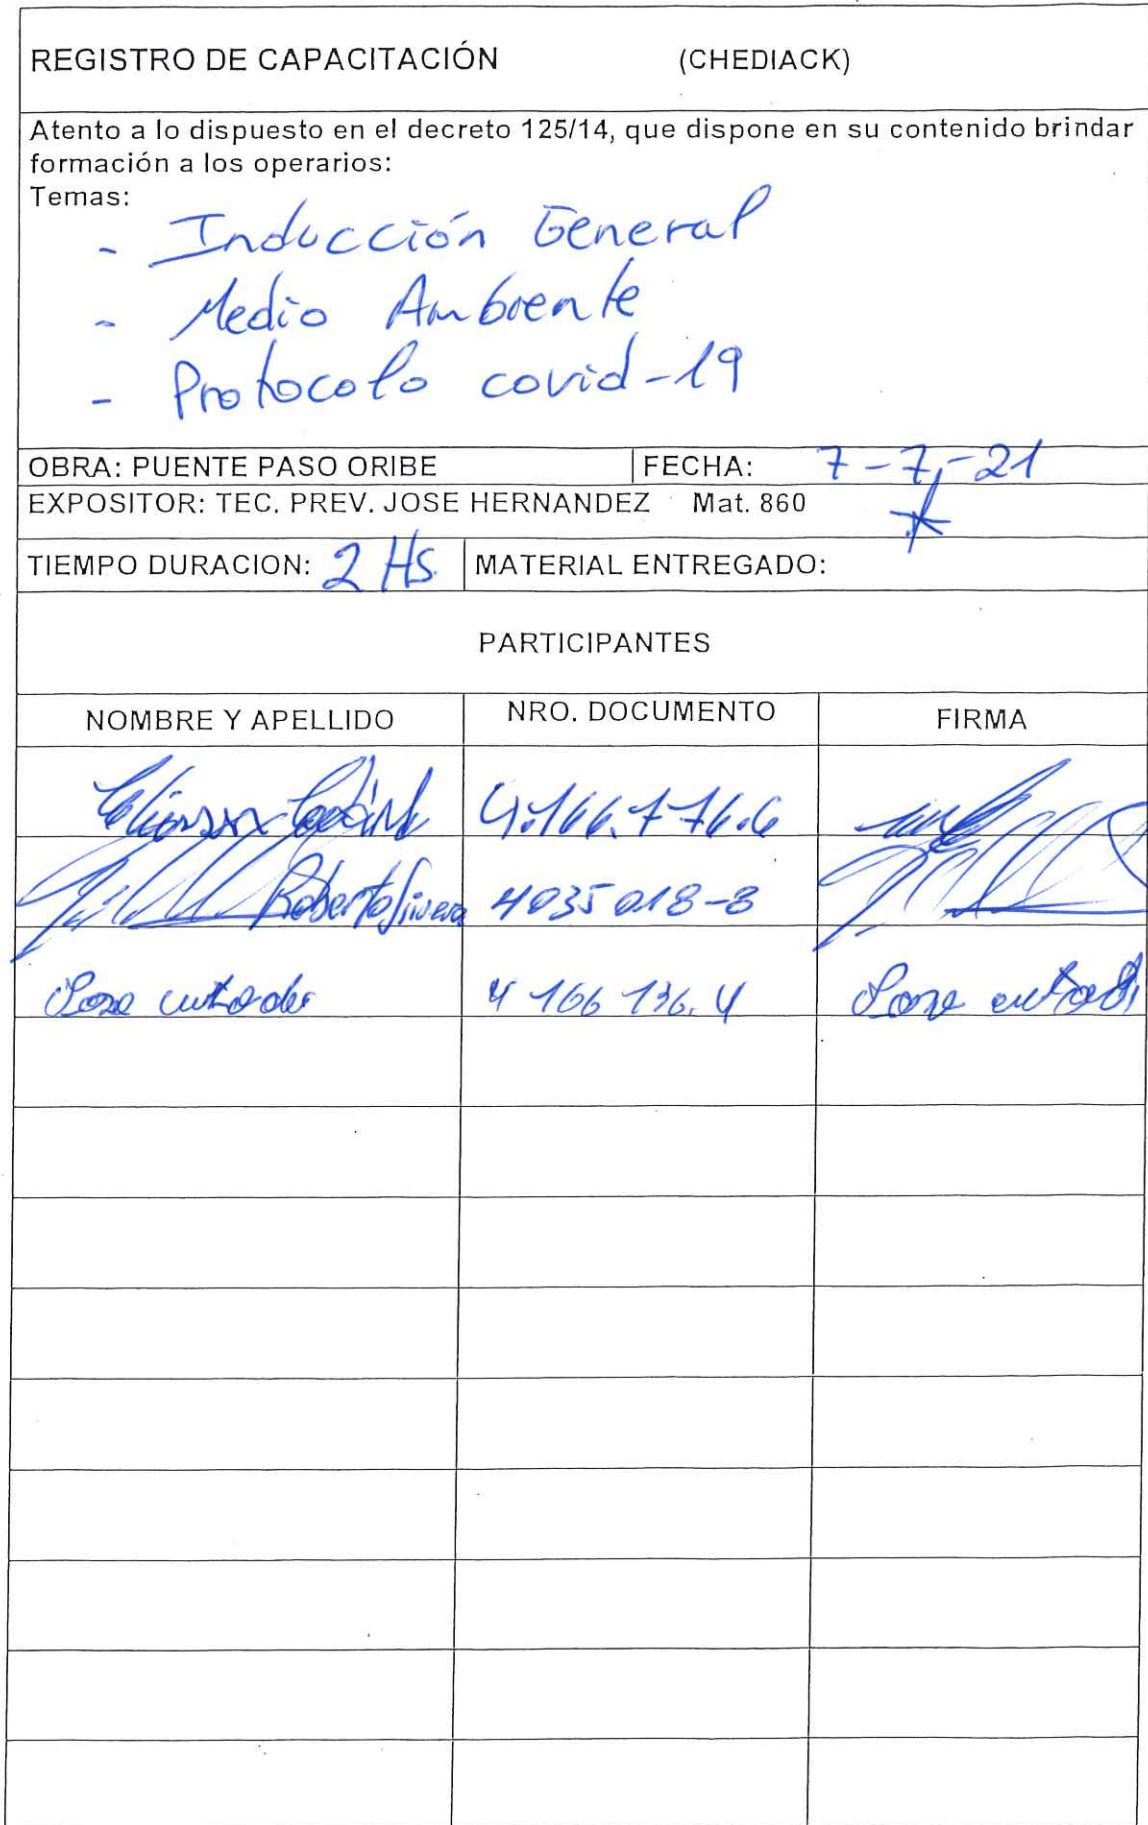 REGISTRO DE CAPACITACIÓN (CHEDIACK)
Atento a lo dispuesto en el decreto 125/14, que dispone en su contenido brindar
formación a los operarios:
Temas:
- Inducción General
- Medio Ambiente
- Protocolo covid-19
OBRA: PUENTE PASO ORIBE FECHA: 7-7-21
EXPOSITOR: TEC. PREV. JOSE HERNANDEZ Mat. 860
TIEMPO DURACION: 2 Hs. MATERIAL ENTREGADO:
PARTICIPANTES
NOMBRE Y APELLIDO NRO. DOCUMENTO FIRMA
4.166.776.6
Roberto 4035018-8
4 166 136.4